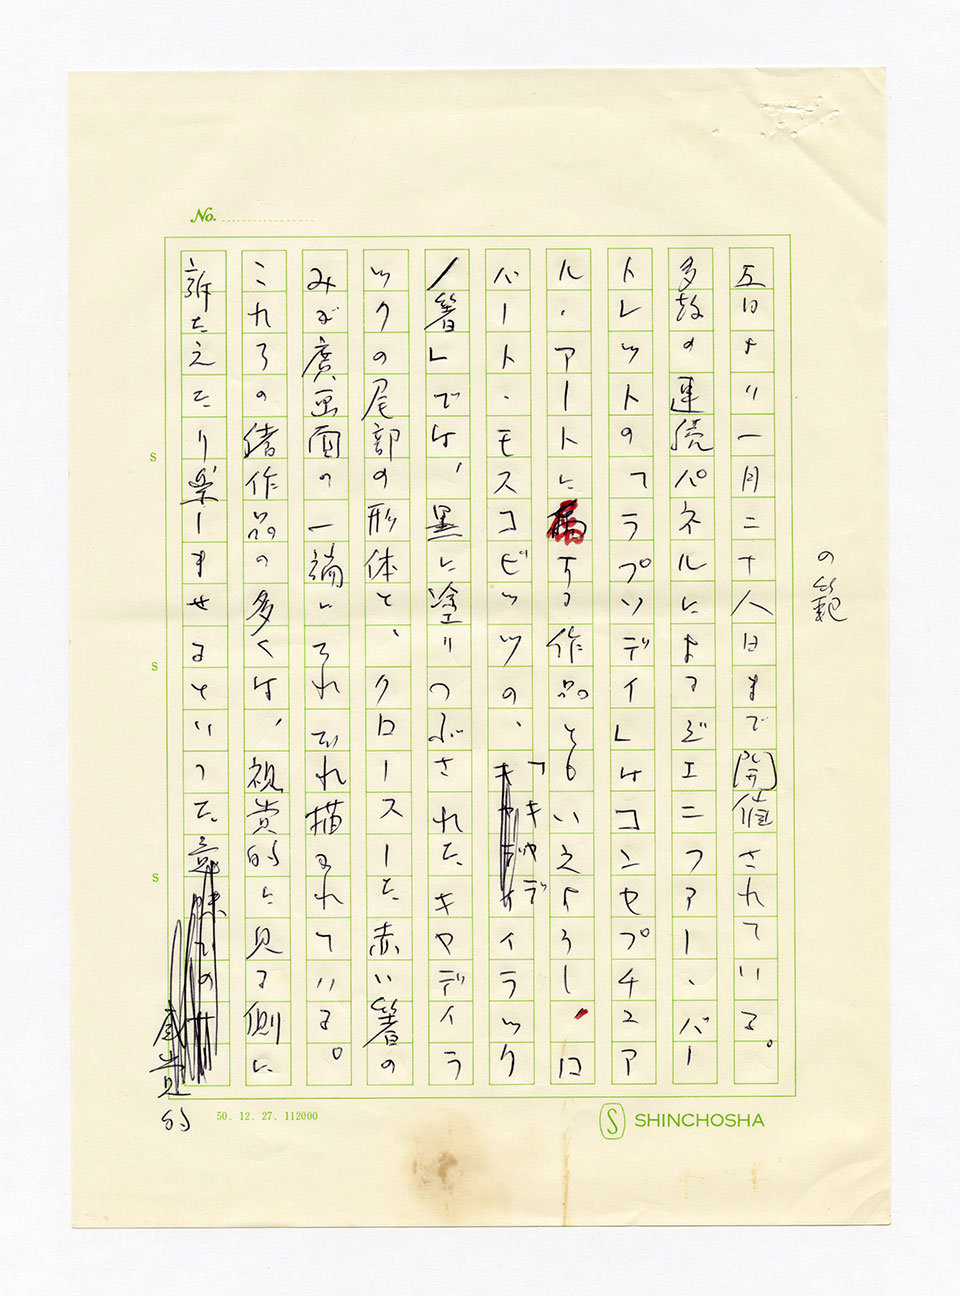 No.
五日より一月二十八日まで開催されている。
多数の連続パネルによるジエニファー・バー
トレットの「ラプソディ」はコンセプチュア
ル・アートに属する作品ともいえようし、ロ
バート・モスコビッツの、「キャディイラック
/箸」では、黒に塗りつぶされたキャディラ
ックの尾部の形体と、クロースした赤い箸の
みが廣画面の一端にそれぞれ描かれている。
これらの諸作品の多くは、視覚的に見る側に
訴たえたり楽しませるといった
の範
S
S
S
50. 12. 27. 112000
S SHINCHOSHA